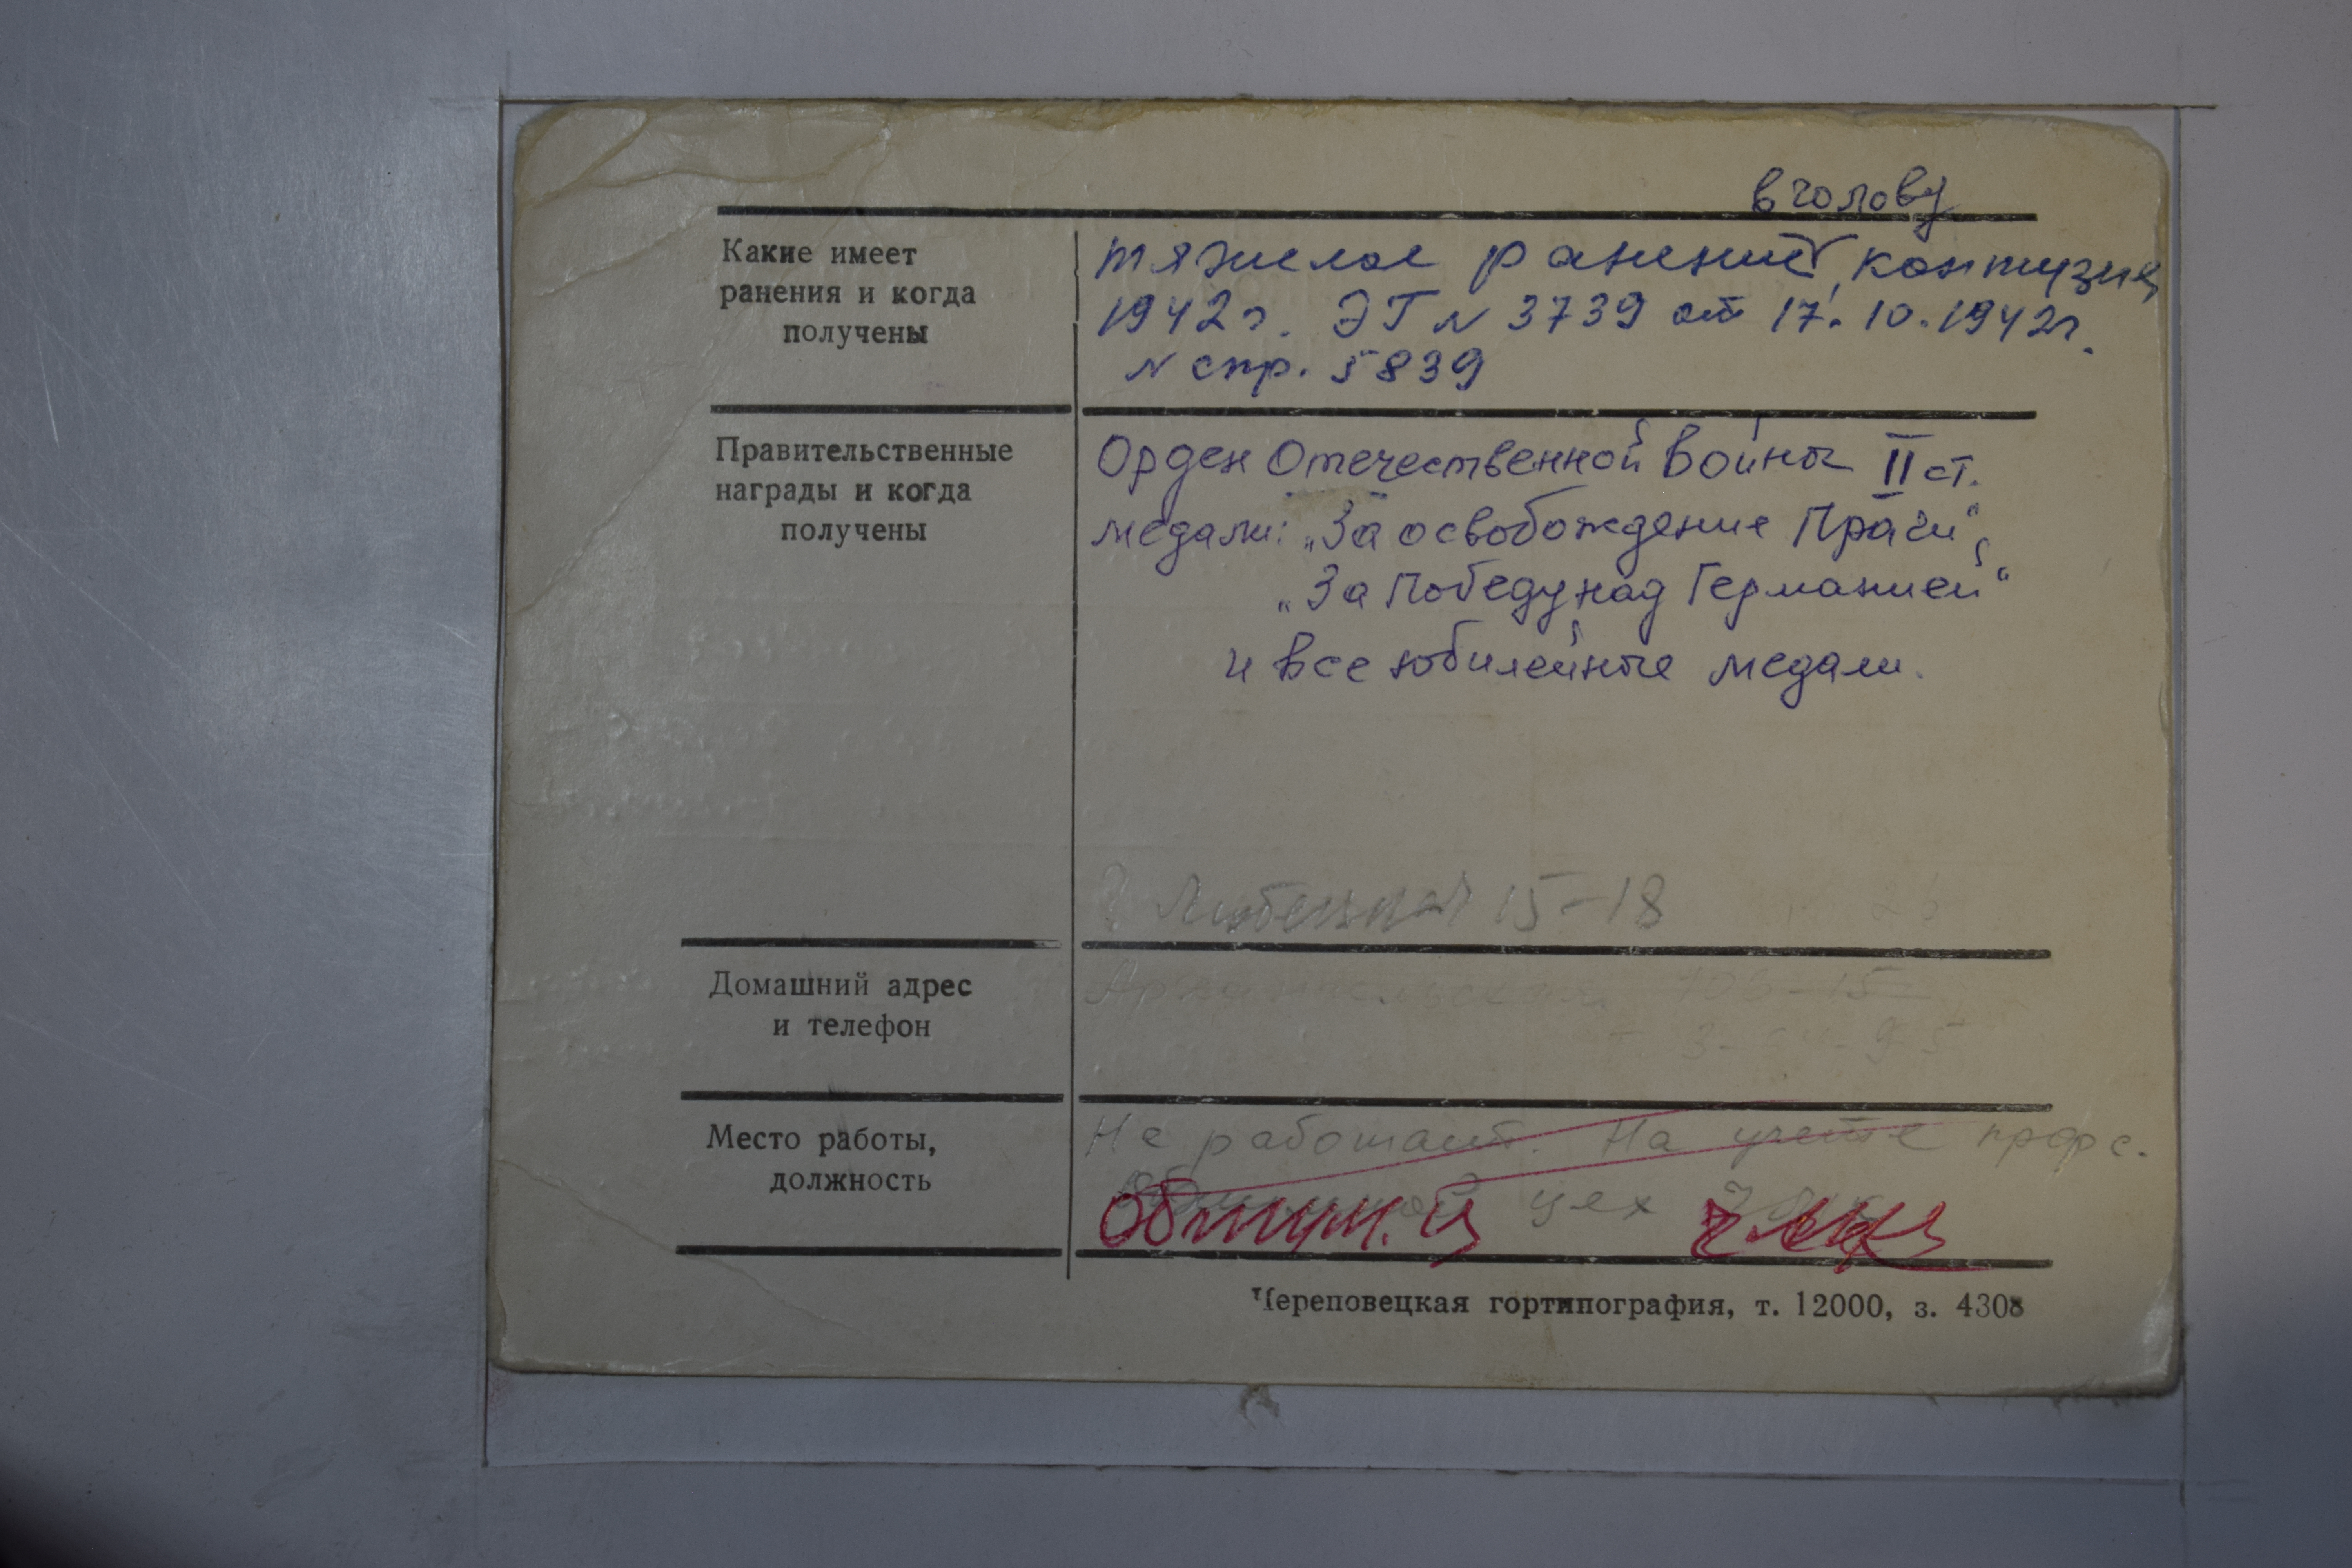 в голову
Какие имеет
ранения и когда
получены
тяжелое ранение, контузия
1942г. ЭГ N 3739 от 17.10.1942г.
N спр. 5839
Правительственные
награды и когда
получены
Орден Отечественной Войны II ст.
медали: „За освобождение Праги“,
„За Победу над Германией“
и все юбилейные медали.
15-18
Домашний адрес
и телефон
Архангельская 106-15
Место работы,
должность
Не работает. На учете проф с.
цех
Обжим. ц
Череповецкая гортипография, т. 12000, з. 4308